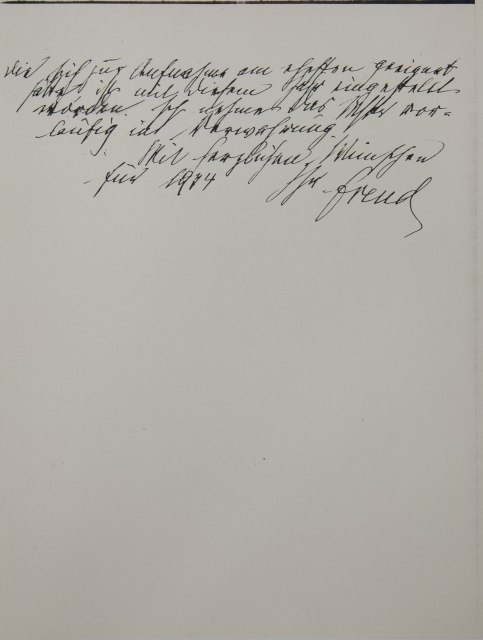 die sich zur Aufnahme am ehesten geeignet
hätte ist mit diesem Jahr eingestellt
worden. Ich nehme das Mskr vor-
läufig in Verwahrung.
Mit herzlichen Wünschen
für 1934
Ihr Freud